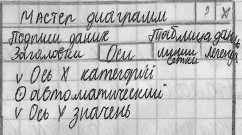 Мастер диаграмм ? X
Подписи даних Таблица данн
Заголовки Оси линии сетки Легенда
v Ось X категорії
⊙ автоматический
v Ось Y значень